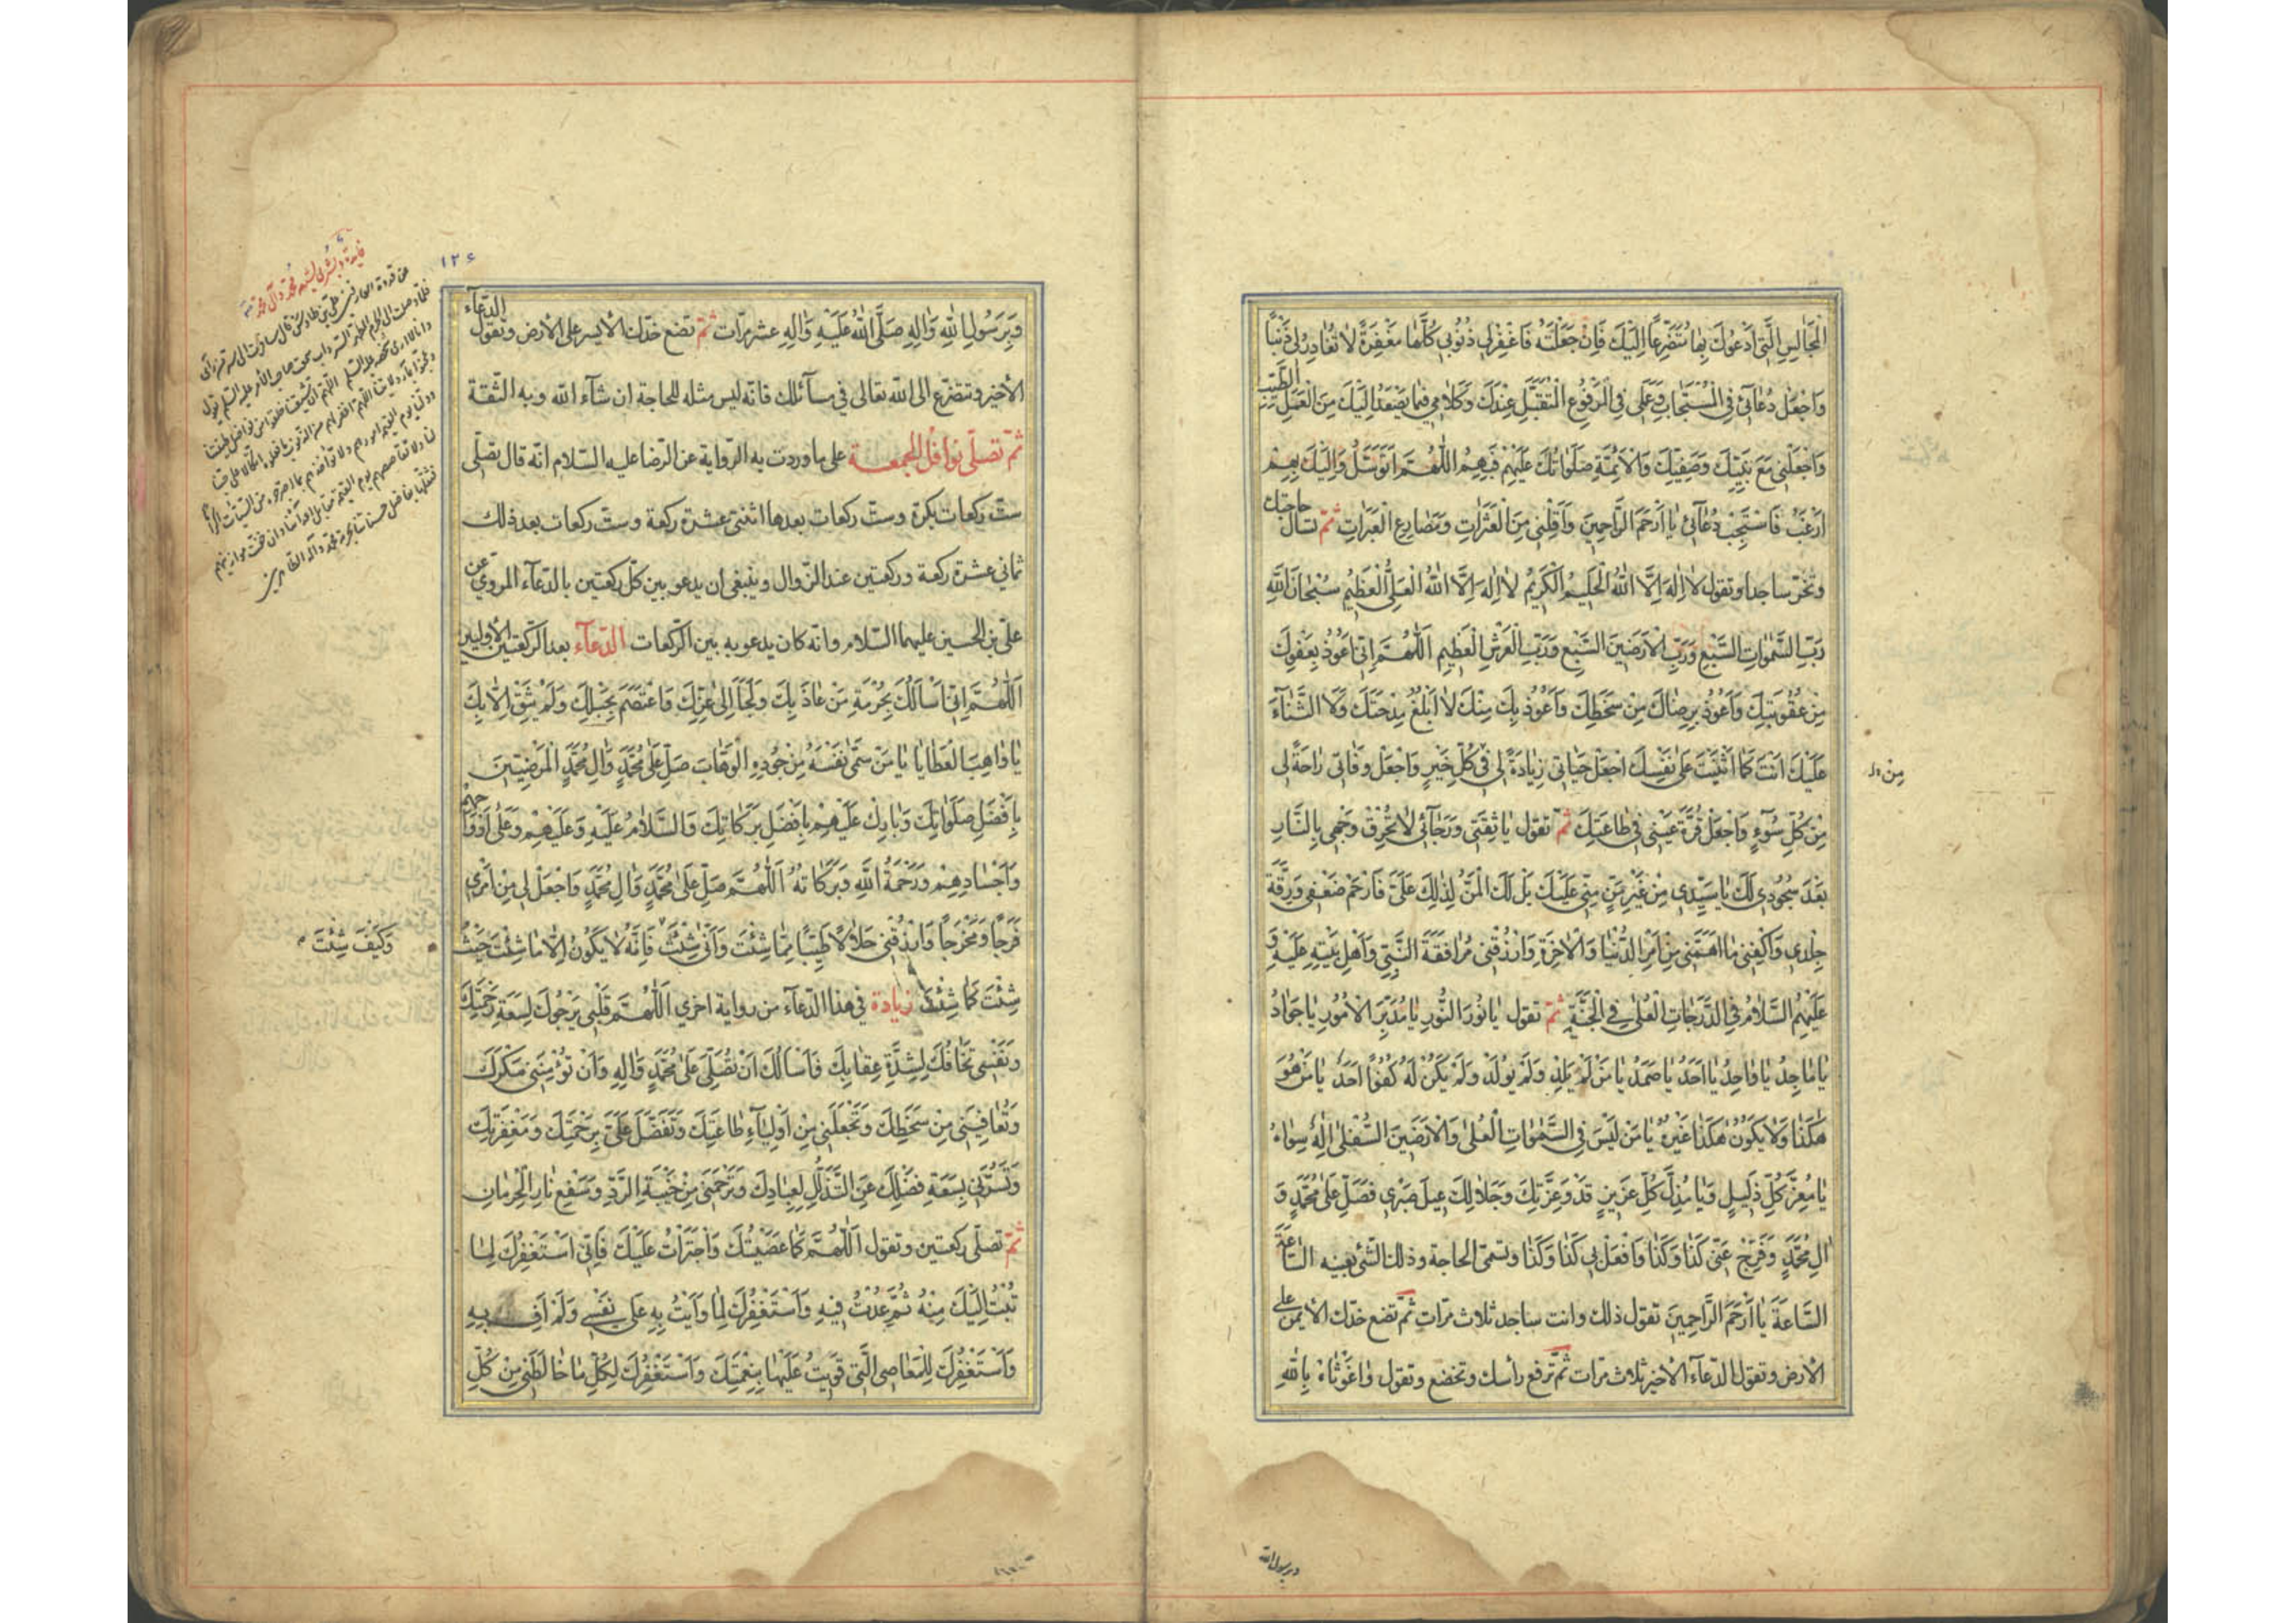 الْمَجَالِسِ الَّتِي أَدْعُوكَ بِهَا مُتَضَرِّعًا إِلَيْكَ فَإِنْ جَعَلْتَهُ فَاغْفِرْ لِي ذُنُوبِي كُلَّهَا مَغْفِرَةً لَا تُغَادِرُ لِي ذَنْبًا
وَاجْعَلْ دُعَائِي فِي الْمُسْتَجَابِ وَعَمَلِي فِي الْمَرْفُوعِ الْمُتَقَبَّلِ عِنْدَكَ وَكَلَامِي فِيمَا يَصْعَدُ إِلَيْكَ مِنَ الْعَمَلِ الطَّيِّبِ
وَاجْعَلْنِي مَعَ نَبِيِّكَ وَصَفِيِّكَ وَالْأَئِمَّةِ صَلَوَاتُكَ عَلَيْهِمْ فَبِهِمُ اللَّهُمَّ أَتَوَسَّلُ وَإِلَيْكَ بِهِمْ
أَرْغَبُ فَاسْتَجِبْ دُعَائِي يَا أَرْحَمَ الرَّاحِمِينَ وَأَقِلْنِي مِنَ الْعَثَرَاتِ وَمَصَارِعِ الْعَبَرَاتِ ثمّ تسأل حاجتك
وتخرّ ساجدا وتقول لَا إِلَهَ إِلَّا اللَّهُ الْحَلِيمُ الْكَرِيمُ لَا إِلَهَ إِلَّا اللَّهُ الْعَلِيُّ الْعَظِيمُ سُبْحَانَ اللَّهِ
رَبِّ السَّمَوَاتِ السَّبْعِ وَرَبِّ الْأَرَضِينَ السَّبْعِ وَرَبِّ الْعَرْشِ الْعَظِيمِ اللَّهُمَّ إِنِّي أَعُوذُ بِعَفْوِكَ
مِنْ عُقُوبَتِكَ وَأَعُوذُ بِرِضَاكَ مِنْ سَخَطِكَ وَأَعُوذُ بِكَ مِنْكَ لَا أَبْلُغُ مِدْحَتَكَ وَلَا الثَّنَاءَ
عَلَيْكَ أَنْتَ كَمَا أَثْنَيْتَ عَلَى نَفْسِكَ اجْعَلْ حَيَاتِي زِيَادَةً لِي فِي كُلِّ خَيْرٍ وَاجْعَلْ وَفَاتِي رَاحَةً لِي
مِنْ كُلِّ سُوءٍ وَاجْعَلْ قُرَّةَ عَيْنِي فِي طَاعَتِكَ ثمّ تقول يَا ثِقَتِي وَرَجَائِي لَا تُحْرِقْ وَجْهِي بِالنَّارِ
بَعْدَ سُجُودِي لَكَ يَا سَيِّدِي مِنْ غَيْرِ مَنٍّ مِنِّي عَلَيْكَ بَلْ لَكَ الْمَنُّ لِذَلِكَ عَلَيَّ فَارْحَمْ ضَعْفِي وَرِقَّةَ
جِلْدِي وَاكْفِنِي مَا أَهَمَّنِي مِنْ أَمْرِ الدُّنْيَا وَالْآخِرَةِ وَارْزُقْنِي مُرَافَقَةَ النَّبِيِّ وَأَهْلِ بَيْتِهِ عَلَيْهِ وَ
عَلَيْهِمُ السَّلَامُ فِي الدَّرَجَاتِ الْعُلَى فِي الْجَنَّةِ ثمّ تقول يَا نُورَ النُّورِ يَا مُدَبِّرَ الْأُمُورِ يَا جَوَادُ
يَا مَاجِدُ يَا وَاحِدُ يَا أَحَدُ يَا صَمَدُ يَا مَنْ لَمْ يَلِدْ وَلَمْ يُولَدْ وَلَمْ يَكُنْ لَهُ كُفُوًا أَحَدٌ يَا مَنْ هُوَ
هَكَذَا وَلَا يَكُونُ هَكَذَا غَيْرُهُ يَا مَنْ لَيْسَ فِي السَّمَوَاتِ الْعُلَى وَالْأَرَضِينَ السُّفْلَى إِلَهٌ سِوَاهُ
يَا مُعِزَّ كُلِّ ذَلِيلٍ وَيَا مُذِلَّ كُلِّ عَزِيزٍ قَدْ وَعِزَّتِكَ وَجَلَالِكَ عِيلَ صَبْرِي فَصَلِّ عَلَى مُحَمَّدٍ وَ
آلِ مُحَمَّدٍ وَفَرِّجْ عَنِّي كَذَا وَكَذَا وَافْعَلْ بِي كَذَا وَكَذَا وتسمّى الحاجة وذلك الشّيء بعينه السَّاعَةَ
السَّاعَةَ يَا أَرْحَمَ الرَّاحِمِينَ تقول ذلك وانت ساجد ثلاث مرّات ثمّ تضع خدّك الأيمن على
الأرض وتقول الدّعاء الأخير ثلاث مرّات ثمّ ترفع رأسك وتخضع وتقول وَاغَوْثَاهُ بِاللَّهِ
مِنْ
وبرسول الله
١٢٤
وَبِرَسُولِ اللَّهِ وَآلِهِ صَلَّى اللَّهُ عَلَيْهِ وَآلِهِ عشر مرّات ثمّ تضع خدّك الأيسر على الأرض وتقول الدّعاء
الأخير وتتضرّع الى الله تعالى في مسائلك فانّه ليس مثله للحاجة ان شاء الله وبه الثّقة
ثمّ تصلّى نوافل الجمعة على ما وردت به الرّواية عن الرّضا عليه السّلام انّه قال تصلّى
ستّ ركعات بكرة وستّ ركعات بعدها اثنتى عشرة ركعة وستّ ركعات بعد ذلك
ثماني عشرة ركعة وركعتين عند الزّوال وينبغى أن يدعو بين كلّ ركعتين بالدّعاء المروي عن
علىّ بن الحسين عليهما السّلام وانّه كان يدعو به بين الرّكعات الدّعاء بعد الرّكعتين الأوليين
اللَّهُمَّ إِنِّي أَسْأَلُكَ بِحُرْمَةِ مَنْ عَاذَ بِكَ وَلَجَأَ إِلَى عِزِّكَ وَاعْتَصَمَ بِحَبْلِكَ وَلَمْ يَثِقْ إِلَّا بِكَ
يَا وَاهِبَ الْعَطَايَا يَا مَنْ سَمَّى نَفْسَهُ مِنْ جُودِهِ الْوَهَّابَ صَلِّ عَلَى مُحَمَّدٍ وَآلِ مُحَمَّدٍ الْمَرْضِيِّينَ
بِأَفْضَلِ صَلَوَاتِكَ وَبَارِكْ عَلَيْهِمْ بِأَفْضَلِ بَرَكَاتِكَ وَالسَّلَامُ عَلَيْهِ وَعَلَيْهِمْ وَعَلَى أَرْوَاحِهِمْ
وَأَجْسَادِهِمْ وَرَحْمَةُ اللَّهِ وَبَرَكَاتُهُ اللَّهُمَّ صَلِّ عَلَى مُحَمَّدٍ وَآلِ مُحَمَّدٍ وَاجْعَلْ لِي مِنْ أَمْرِي
فَرَجًا وَمَخْرَجًا وَارْزُقْنِي حَلَالًا طَيِّبًا مِمَّا شِئْتَ وَأَنَّى شِئْتَ فَإِنَّهُ لَا يَكُونُ إِلَّا مَا شِئْتَ حَيْثُ
شِئْتَ كَمَا شِئْتَ زيادة في هذا الدّعاء من رواية اخرى اللَّهُمَّ قَلْبِي يَرْجُوكَ لِسَعَةِ رَحْمَتِكَ
وَنَفْسِي تَخَافُكَ لِشِدَّةِ عِقَابِكَ فَأَسْأَلُكَ أَنْ تُصَلِّيَ عَلَى مُحَمَّدٍ وَآلِهِ وَأَنْ تُؤْمِنَنِي مَكْرَكَ
وَتُعَافِيَنِي مِنْ سَخَطِكَ وَتَجْعَلَنِي مِنْ أَوْلِيَاءِ طَاعَتِكَ وَتَفَضَّلَ عَلَيَّ بِرَحْمَتِكَ وَمَغْفِرَتِكَ
وَتَسُرَّنِي بِسَعَةِ فَضْلِكَ عَنِ التَّذَلُّلِ لِعِبَادِكَ وَتَرْحَمَنِي مِنْ خَيْبَةِ الرَّدِّ وَسَفْعِ نَارِ الْحِرْمَانِ
ثمّ تصلّى ركعتين وتقول اللَّهُمَّ كَمَا عَصَيْتُكَ وَاجْتَرَأْتُ عَلَيْكَ فَإِنِّي أَسْتَغْفِرُكَ لِمَا
تُبْتُ إِلَيْكَ مِنْهُ ثُمَّ عُدْتُ فِيهِ وَأَسْتَغْفِرُكَ لِمَا وَأَيْتُ بِهِ عَلَى نَفْسِي وَلَمْ أَفِ بِهِ
وَأَسْتَغْفِرُكَ لِلْمَعَاصِي الَّتِي قَوِيتُ عَلَيْهَا بِنِعْمَتِكَ وَأَسْتَغْفِرُكَ لِكُلِّ مَا خَالَطَنِي مِنْ كُلِّ
وَكَيْفَ شِئْتَ